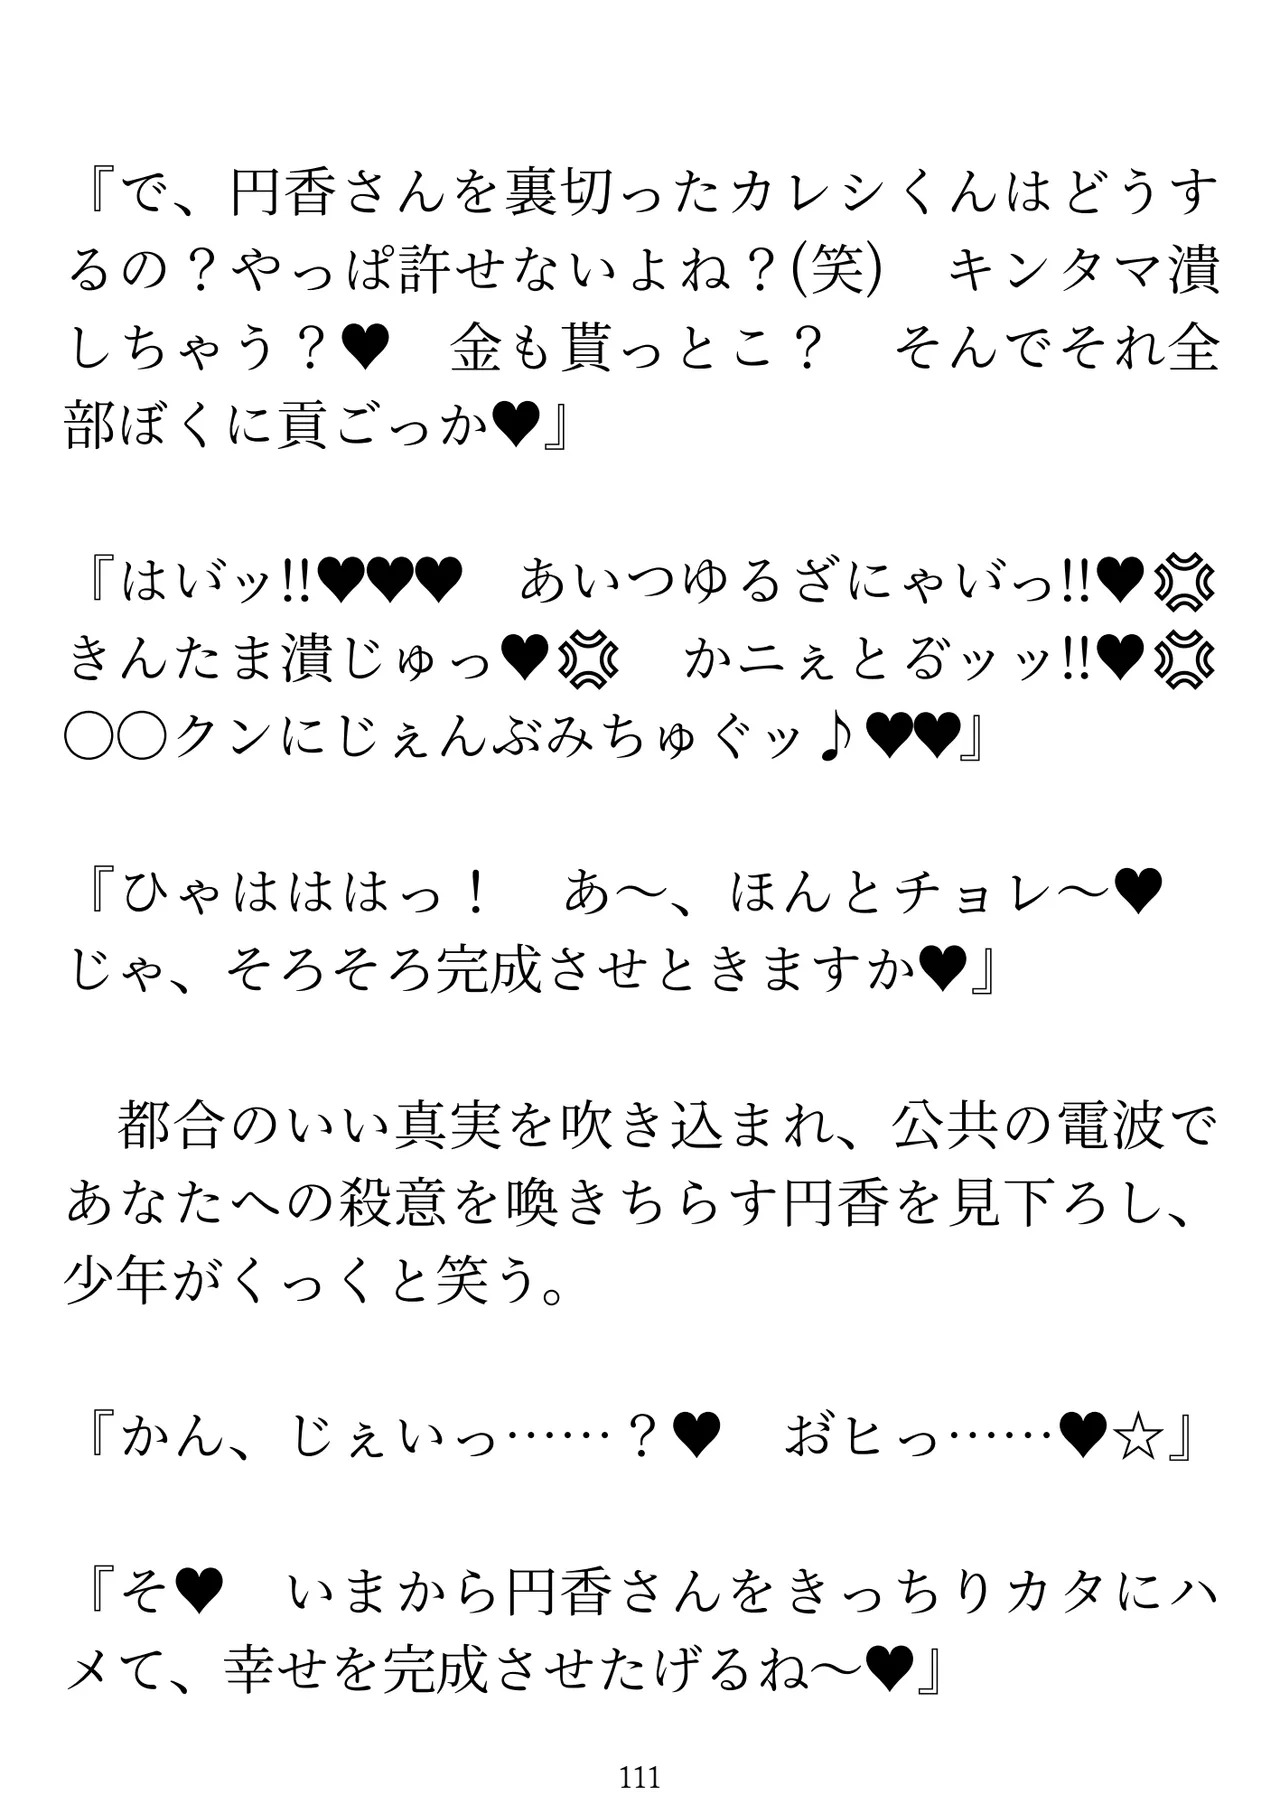 『で、円香さんを裏切ったカレシくんはどうす
るの？やっぱ許せないよね？(笑)　キンタマ潰
しちゃう？♥　金も貰っとこ？　そんでそれ全
部ぼくに貢ごっか♥』
『はい゛ッ!!♥♥♥　あいつゆるざにゃい゛っ!!♥💢
きんたま潰じゅっ♥💢　かニぇとる゛ッッ!!♥💢
◯◯クンにじぇんぶみちゅぐッ♪♥♥』
『ひゃはははっ！　あ～、ほんとチョレ～♥
じゃ、そろそろ完成させときますか♥』
　都合のいい真実を吹き込まれ、公共の電波で
あなたへの殺意を喚きちらす円香を見下ろし、
少年がくっくと笑う。
『かん、じぇいっ……？♥　お゛ヒっ……♥☆』
『そ♥　いまから円香さんをきっちりカタにハ
メて、幸せを完成させたげるね～♥』
111